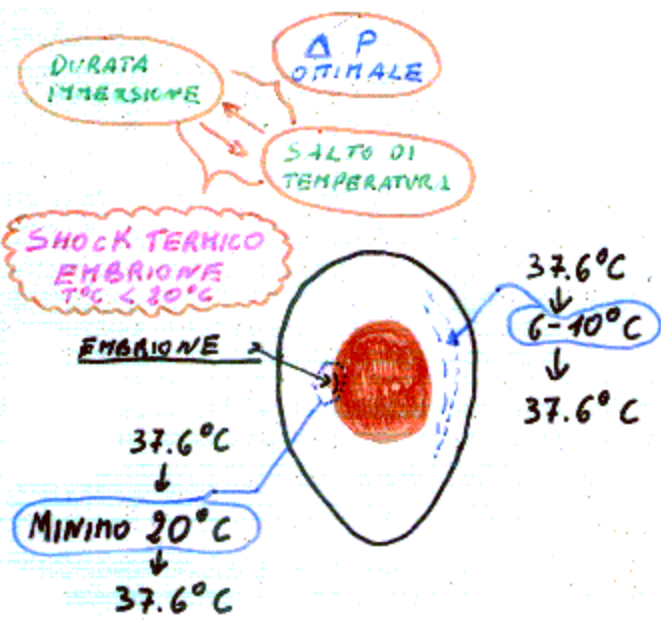 DURATA
IMMERSIONE
Δ P
OTTIMALE
SALTO DI
TEMPERATURA
SHOCK TERMICO
EMBRIONE
T°C < 20°C
EMBRIONE
37.6°C
6-10°C
37.6°C
37.6°C
MINIMO 20°C
37.6°C